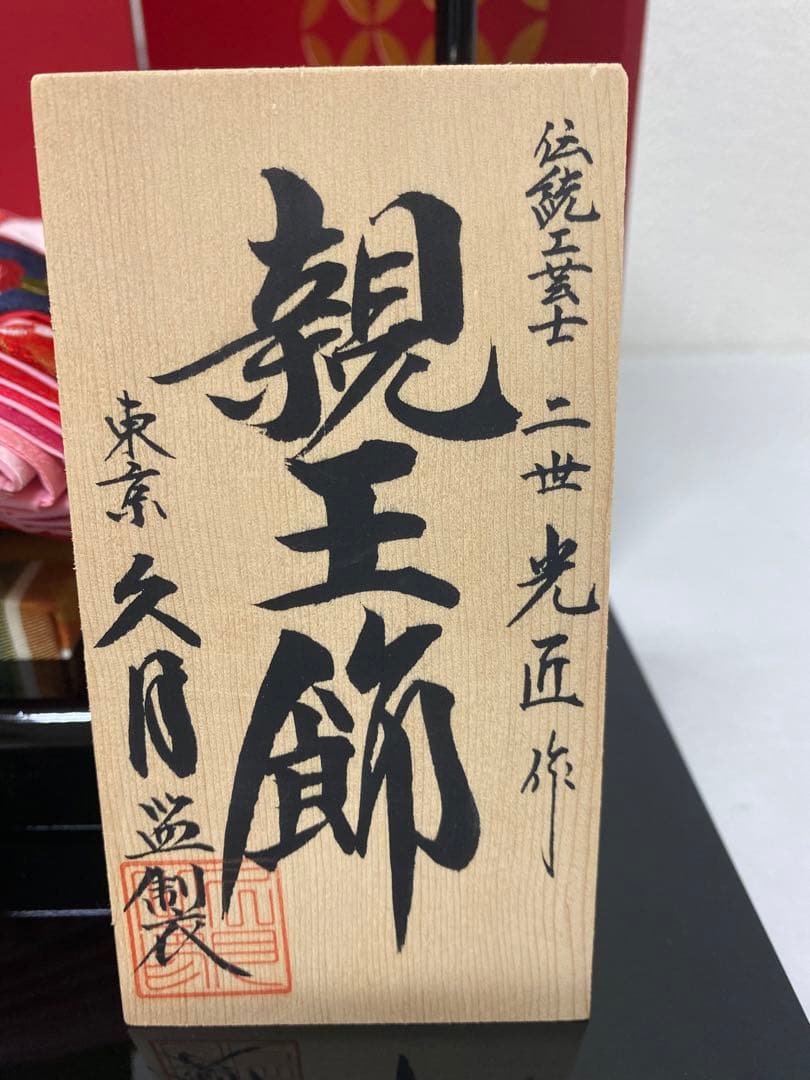 伝統工芸士 二世 光匠作
親王飾
東京 久月監製